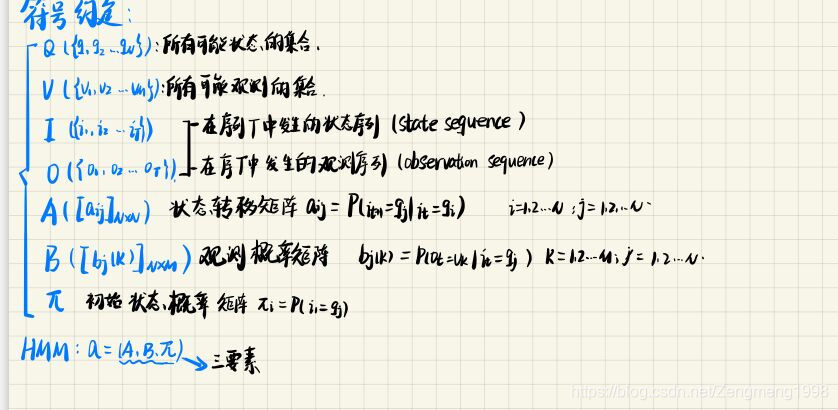 符号约定:
Q ({q₁ q₂ ... qN}): 所有可能状态的集合.
V ({v₁, v₂ ... vM}): 所有可能观测的集合.
I ({i₁, i₂ ... iT}) 在序列T中发生的状态序列 (state sequence)
O ({o₁, o₂ ... oT}) 在序T中发生的观测序列 (observation sequence)
A ([aij]N×N) 状态转移矩阵 aij = P(it+1=qj|it=qi) i=1,2...N ; j=1,2...N.
B ([bj(k)]N×M) 观测概率矩阵 bj(k) = P(Ot=Vk|it=qj) K=1,2...M; j=1,2...N.
π 初始状态概率矩阵 πi=P(i₁=qj)
HMM: a = (A, B, π) 三要素
https://blog.csdn.net/Zengmeng1998